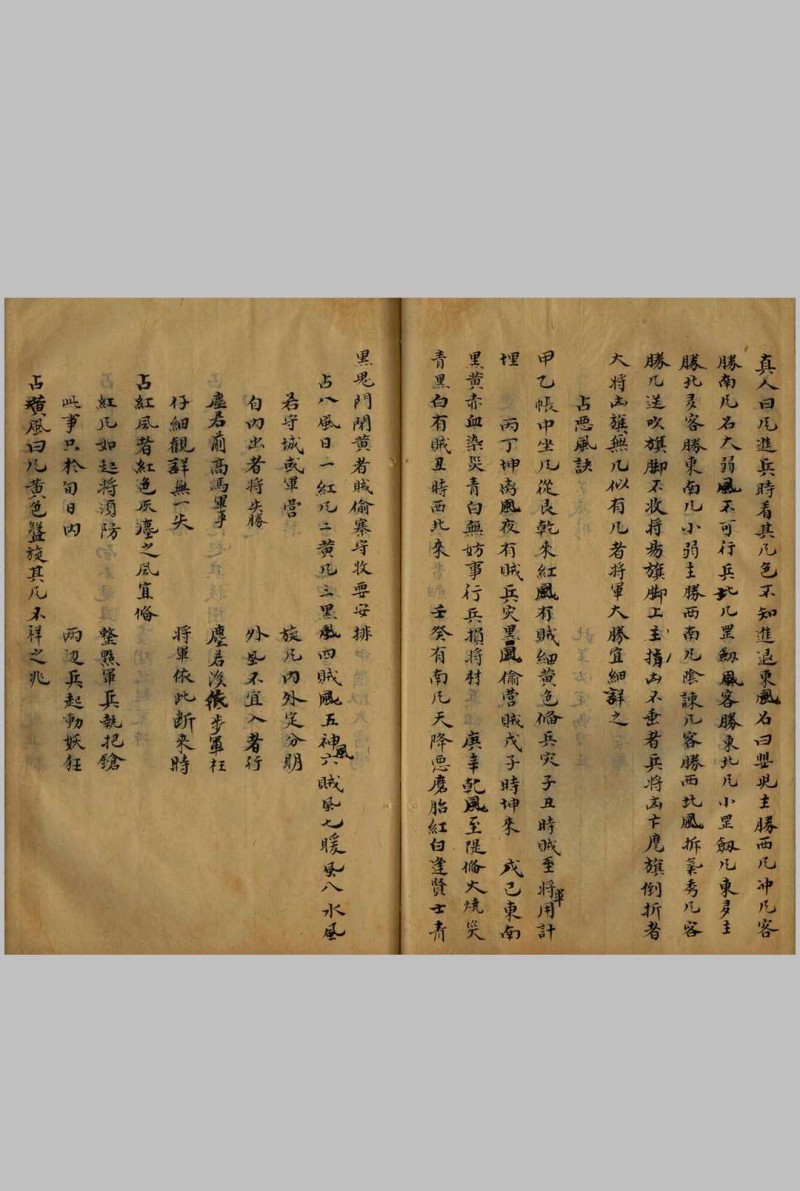 真人曰凡進兵時看其凡色不知進退東風名曰嬰兒主勝西凡冲凡客
勝南凡名大弱風不可行兵北凡罡劔風客勝東北凡小罡劔凡東多主
勝北多客勝東南凡小弱主勝西南凡陰諫凡客勝西北風拆氣秀凡客
勝凡送吹旗脚不收将易旗脚上主搆凶不垂者兵将凶下麾旗倒折者
大将凶旗無凡似有凡者将軍大勝宜細詳之
占恶風訣
甲乙帳中坐凡從艮乾来紅風有賊細黄色俻兵灾子丑時賊至将軍用計
埋 丙丁坤离風夜有賊兵灾黑風偷营賊戊子時坤来 戍己東南
黑黄赤血染災青白無妨事行兵損将材 庚辛乾風至隄俻火燒災
青黑白有賊丑時西北来 壬癸有南凡天降恶磨胎紅白逢賢士青
黑鬼門閉黄者賊偷寨守收要安排
占八風日一紅凡二黄凡三黑風四賊風五神風六賊風七暖風八水風
若守城或軍营 旋凡内外定分明
自内出者将失勝 外風不宜入者行
塵若前高馬軍事 塵若後依步軍枉
仔細觀詳無一失 将軍依此断来時
占紅風者紅色灰塵之風宜俻
紅凡如起将湏防 整點軍兵執把鎗
此事只於旬日内 两边兵起動妖狂
占黄風曰凡黄色盤旋其凡不祥之兆